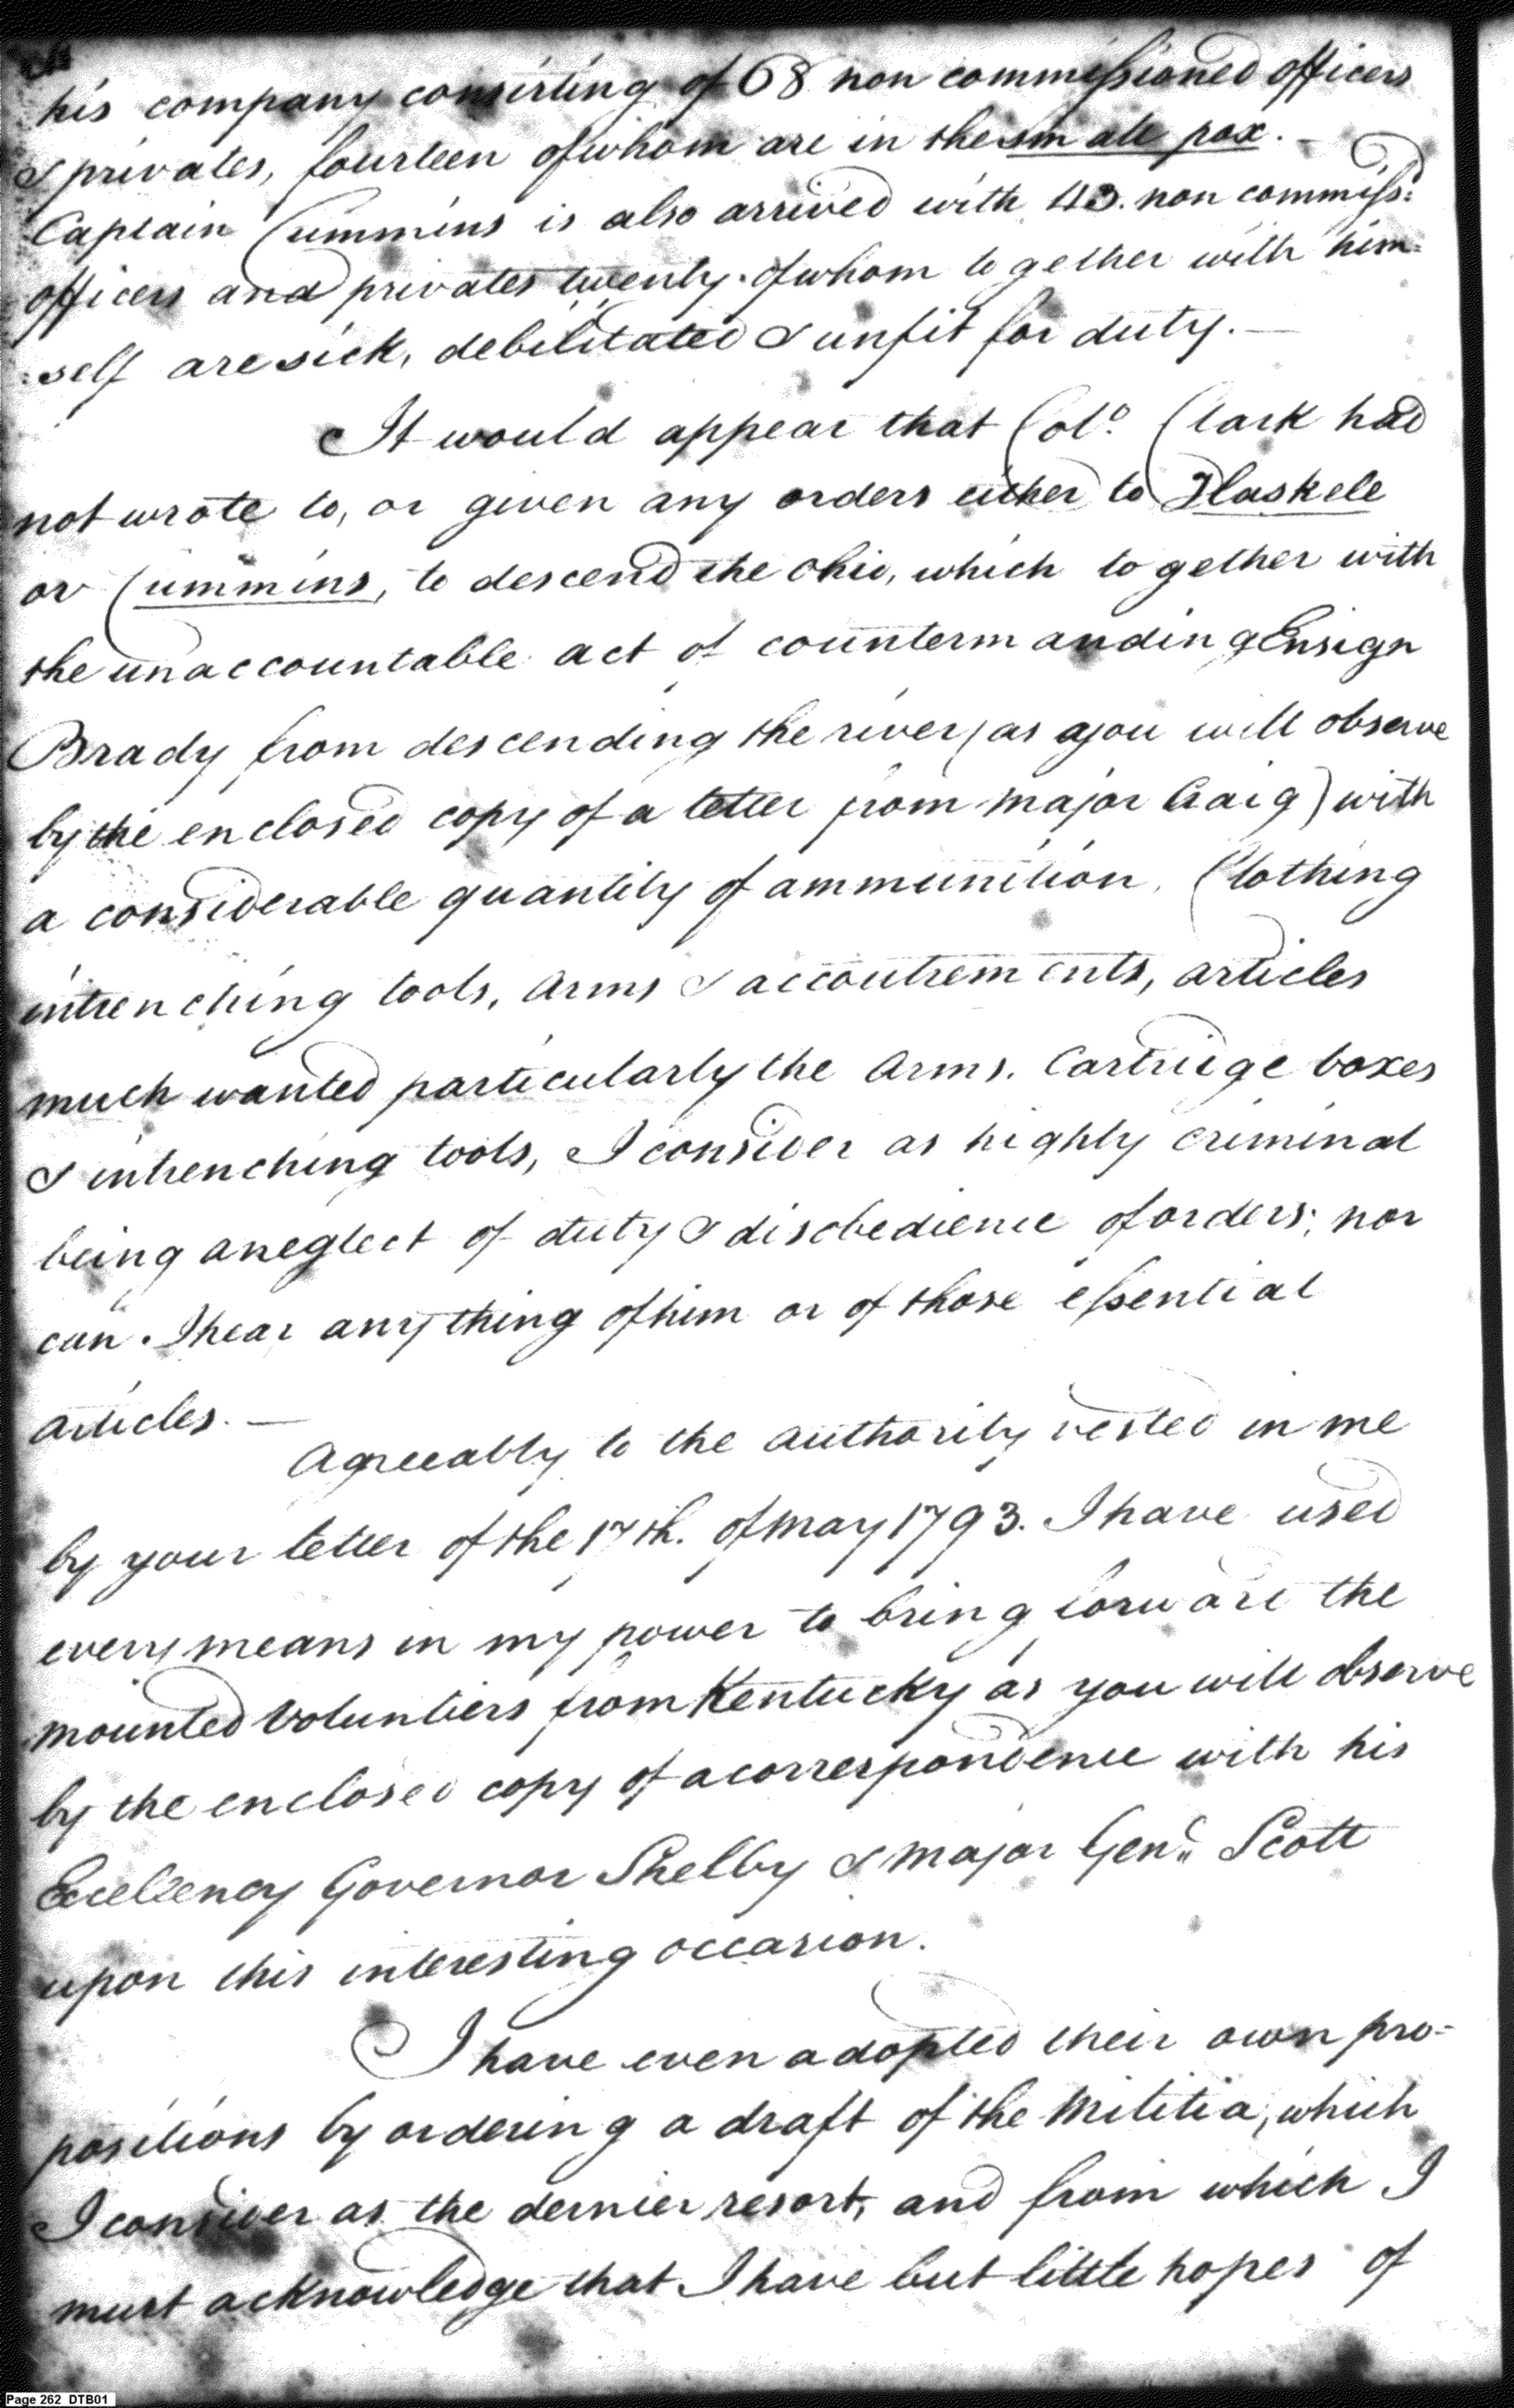 his company consisting of 68 non commissioned officers
& privates, fourteen of whom are in the small pox. —
Captain Cummins is also arrived with 43. non commiss:d
officers and privates twenty of whom together with him=
=self are sick, debilitated & unfit for duty. —
It would appear that Colo. Clark had
not wrote to, or given any orders either to Haskele
or Cummins, to descend the Ohio, which together with
the unaccountable act of countermanding Ensign
Brady from descending the river (as you will observe
by the enclosed copy of a letter from Major Craig) with
a considerable quantity of ammunition, Clothing
intrenching tools, Arms & accoutrements, articles
much wanted particularly the Arms. Cartridge boxes
& intrenching tools, I consider as highly criminal
being a neglect of duty & disobedience of orders; nor
can I hear any thing of him or of those essential
articles. —
Agreeably to the authority vested in me
by your letter of the 17th. of May 1793. I have used
every means in my power to bring forward the
mounted Voluntiers from Kentucky as you will observe
by the enclosed copy of a correspondence with his
Excellency Governor Shelby & Major Genll. Scott
upon this interesting occasion.
I have even adopted their own pro=
positions by ordering a draft of the Militia, which
I consider as the dernier resort, and from which I
must acknowledge that I have but little hopes of
Page 262 DTB01